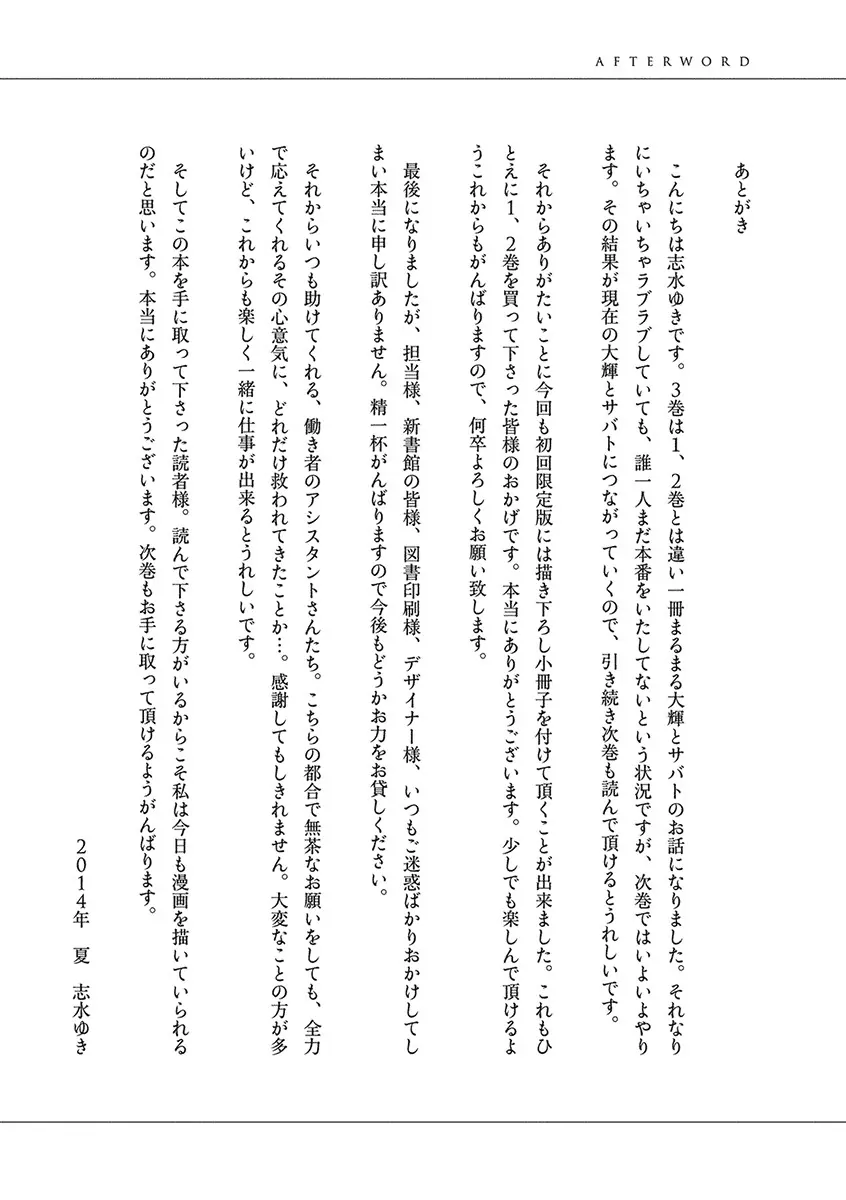 AFTERWORD
あとがき
こんにちは志水ゆきです。3巻は1、2巻とは違い一冊まるまる大輝とサバトのお話になりました。それなり
にいちゃいちゃラブラブしていても、誰一人まだ本番をいたしてないという状況ですが、次巻ではいよいよやり
ます。その結果が現在の大輝とサバトにつながっていくので、引き続き次巻も読んで頂けるとうれしいです。
それからありがたいことに今回も初回限定版には描き下ろし小冊子を付けて頂くことが出来ました。これもひ
とえに1、2巻を買って下さった皆様のおかげです。本当にありがとうございます。少しでも楽しんで頂けるよ
うこれからもがんばりますので、何卒よろしくお願い致します。
最後になりましたが、担当様、新書館の皆様、図書印刷様、デザイナー様、いつもご迷惑ばかりおかけしてし
まい本当に申し訳ありません。精一杯がんばりますので今後もどうかお力をお貸しください。
それからいつも助けてくれる、働き者のアシスタントさんたち。こちらの都合で無茶なお願いをしても、全力
で応えてくれるその心意気に、どれだけ救われてきたことか…。感謝してもしきれません。大変なことの方が多
いけど、これからも楽しく一緒に仕事が出来るとうれしいです。
そしてこの本を手に取って下さった読者様。読んで下さる方がいるからこそ私は今日も漫画を描いていられる
のだと思います。本当にありがとうございます。次巻もお手に取って頂けるようがんばります。
2014年 夏 志水ゆき